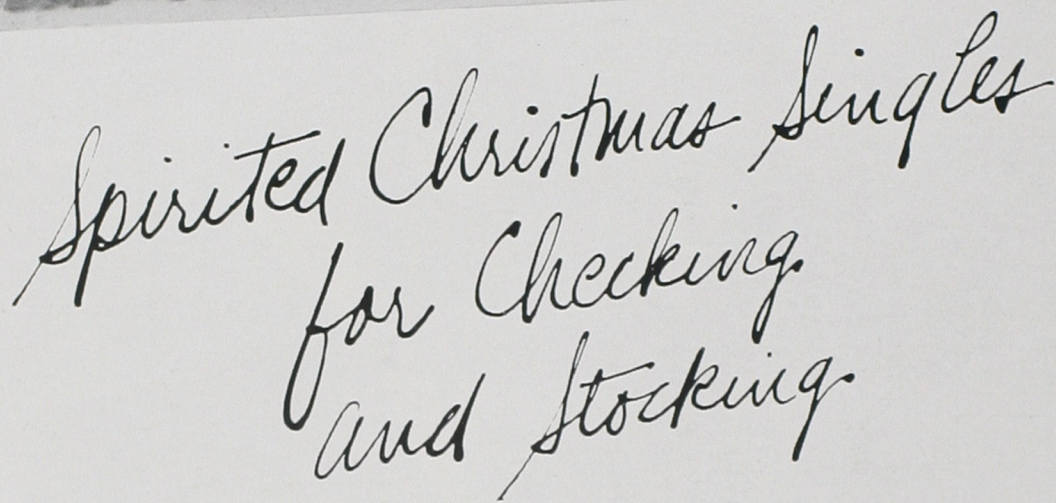 Spirited Christmas Singles
for Checking
and Stocking